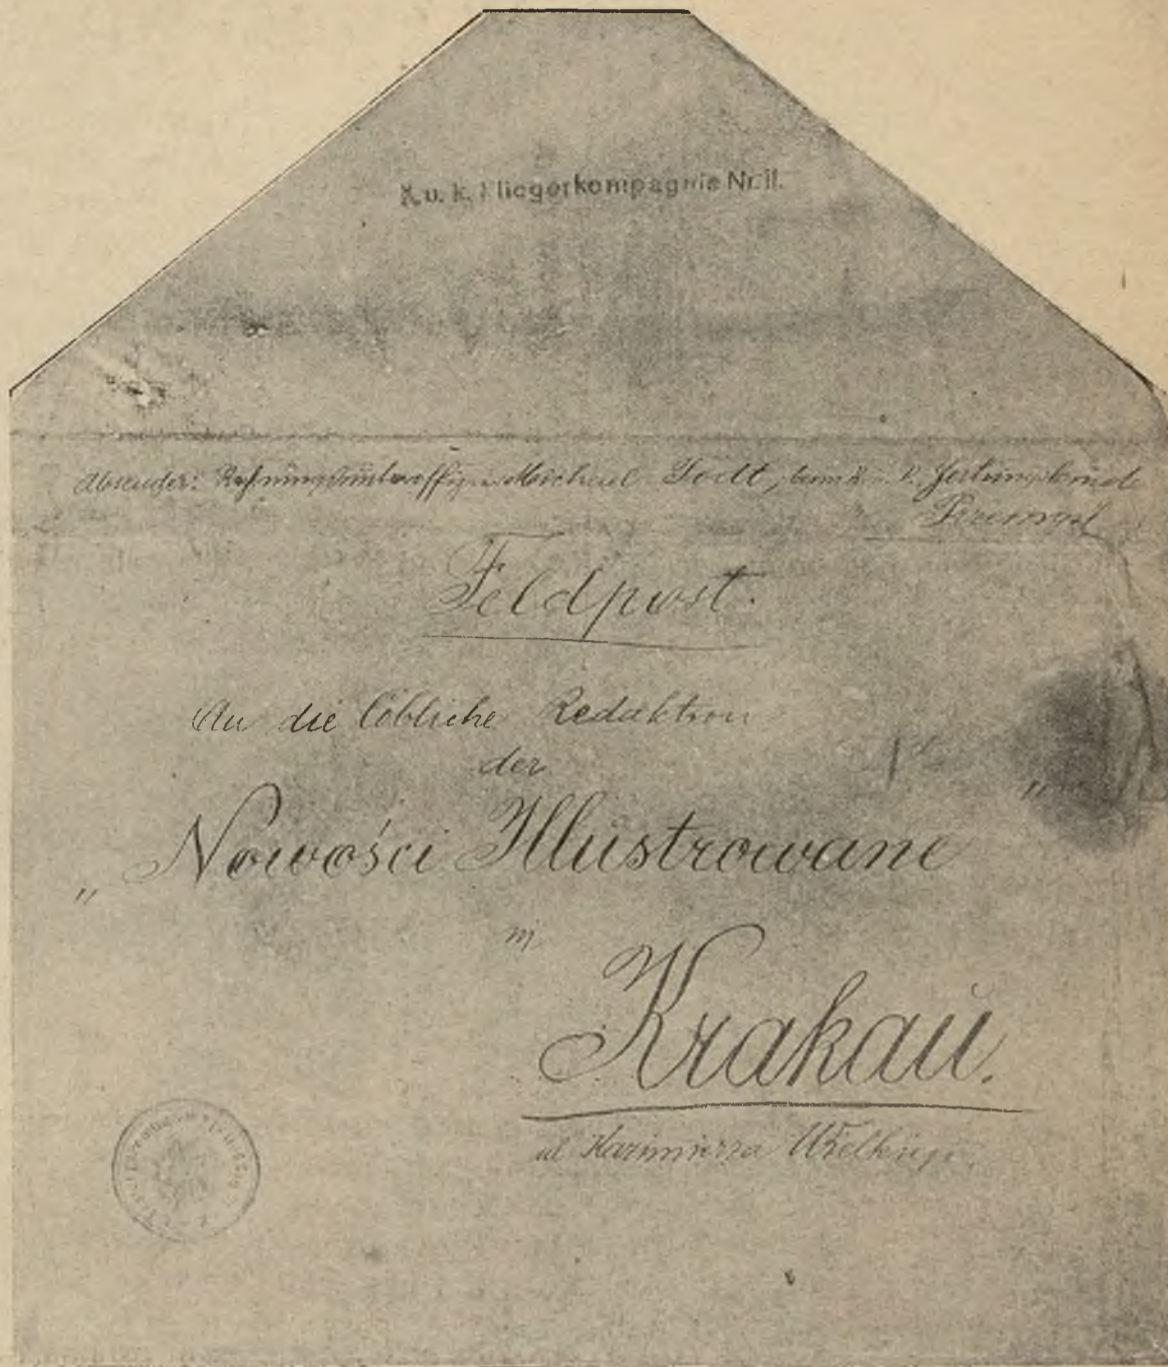 K. u. k. Fliegerkompagnie Nr. 11.
Absender: Rechnungsunteroffizier Michael Todt, beim k. u. k. Festungskmdo
Przemyśl
Feldpost.
An die löbliche Redaktion
der
„Nowości Illustrowane"
in
Krakau.
ul Kazimierza Wielkiego.